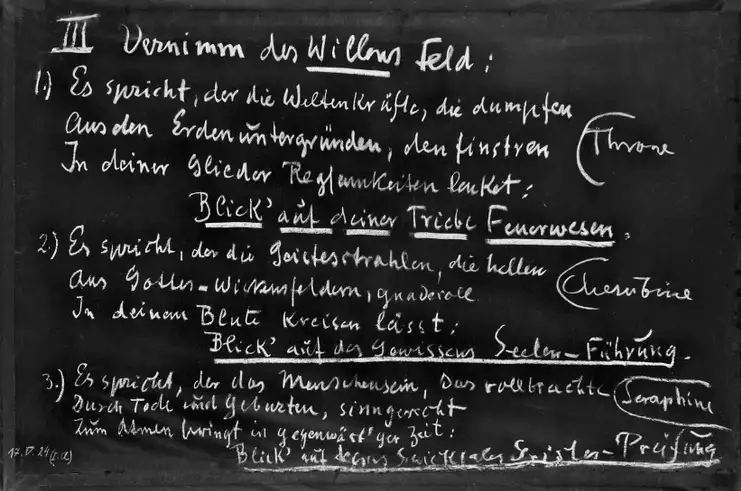 III Vernimm des Willens Feld:
1.) Es spricht, der die Weltenkräfte, die dumpfen
Aus den Erdenuntergründen, den finstren
Throne
In deiner Glieder Regsamkeiten lenket:
Blick' auf deiner Triebe Feuerwesen.
2.) Es spricht, der die Geistesstrahlen, die hellen
Aus Gottes-Wirkensfeldern, gnadevoll
Cherubine
In deinem Blute kreisen lässt:
Blick' auf des Gewissens Seelen-Führung.
3.) Es spricht, der das Menschensein, das vollbrachte
Seraphine
Durch Tode und Geburten, sinngerecht
Zum Atmen bringt in gegenwärt'ger Zeit:
Blick' auf deines Schicksales Geistes-Prüfung
17. V. 24